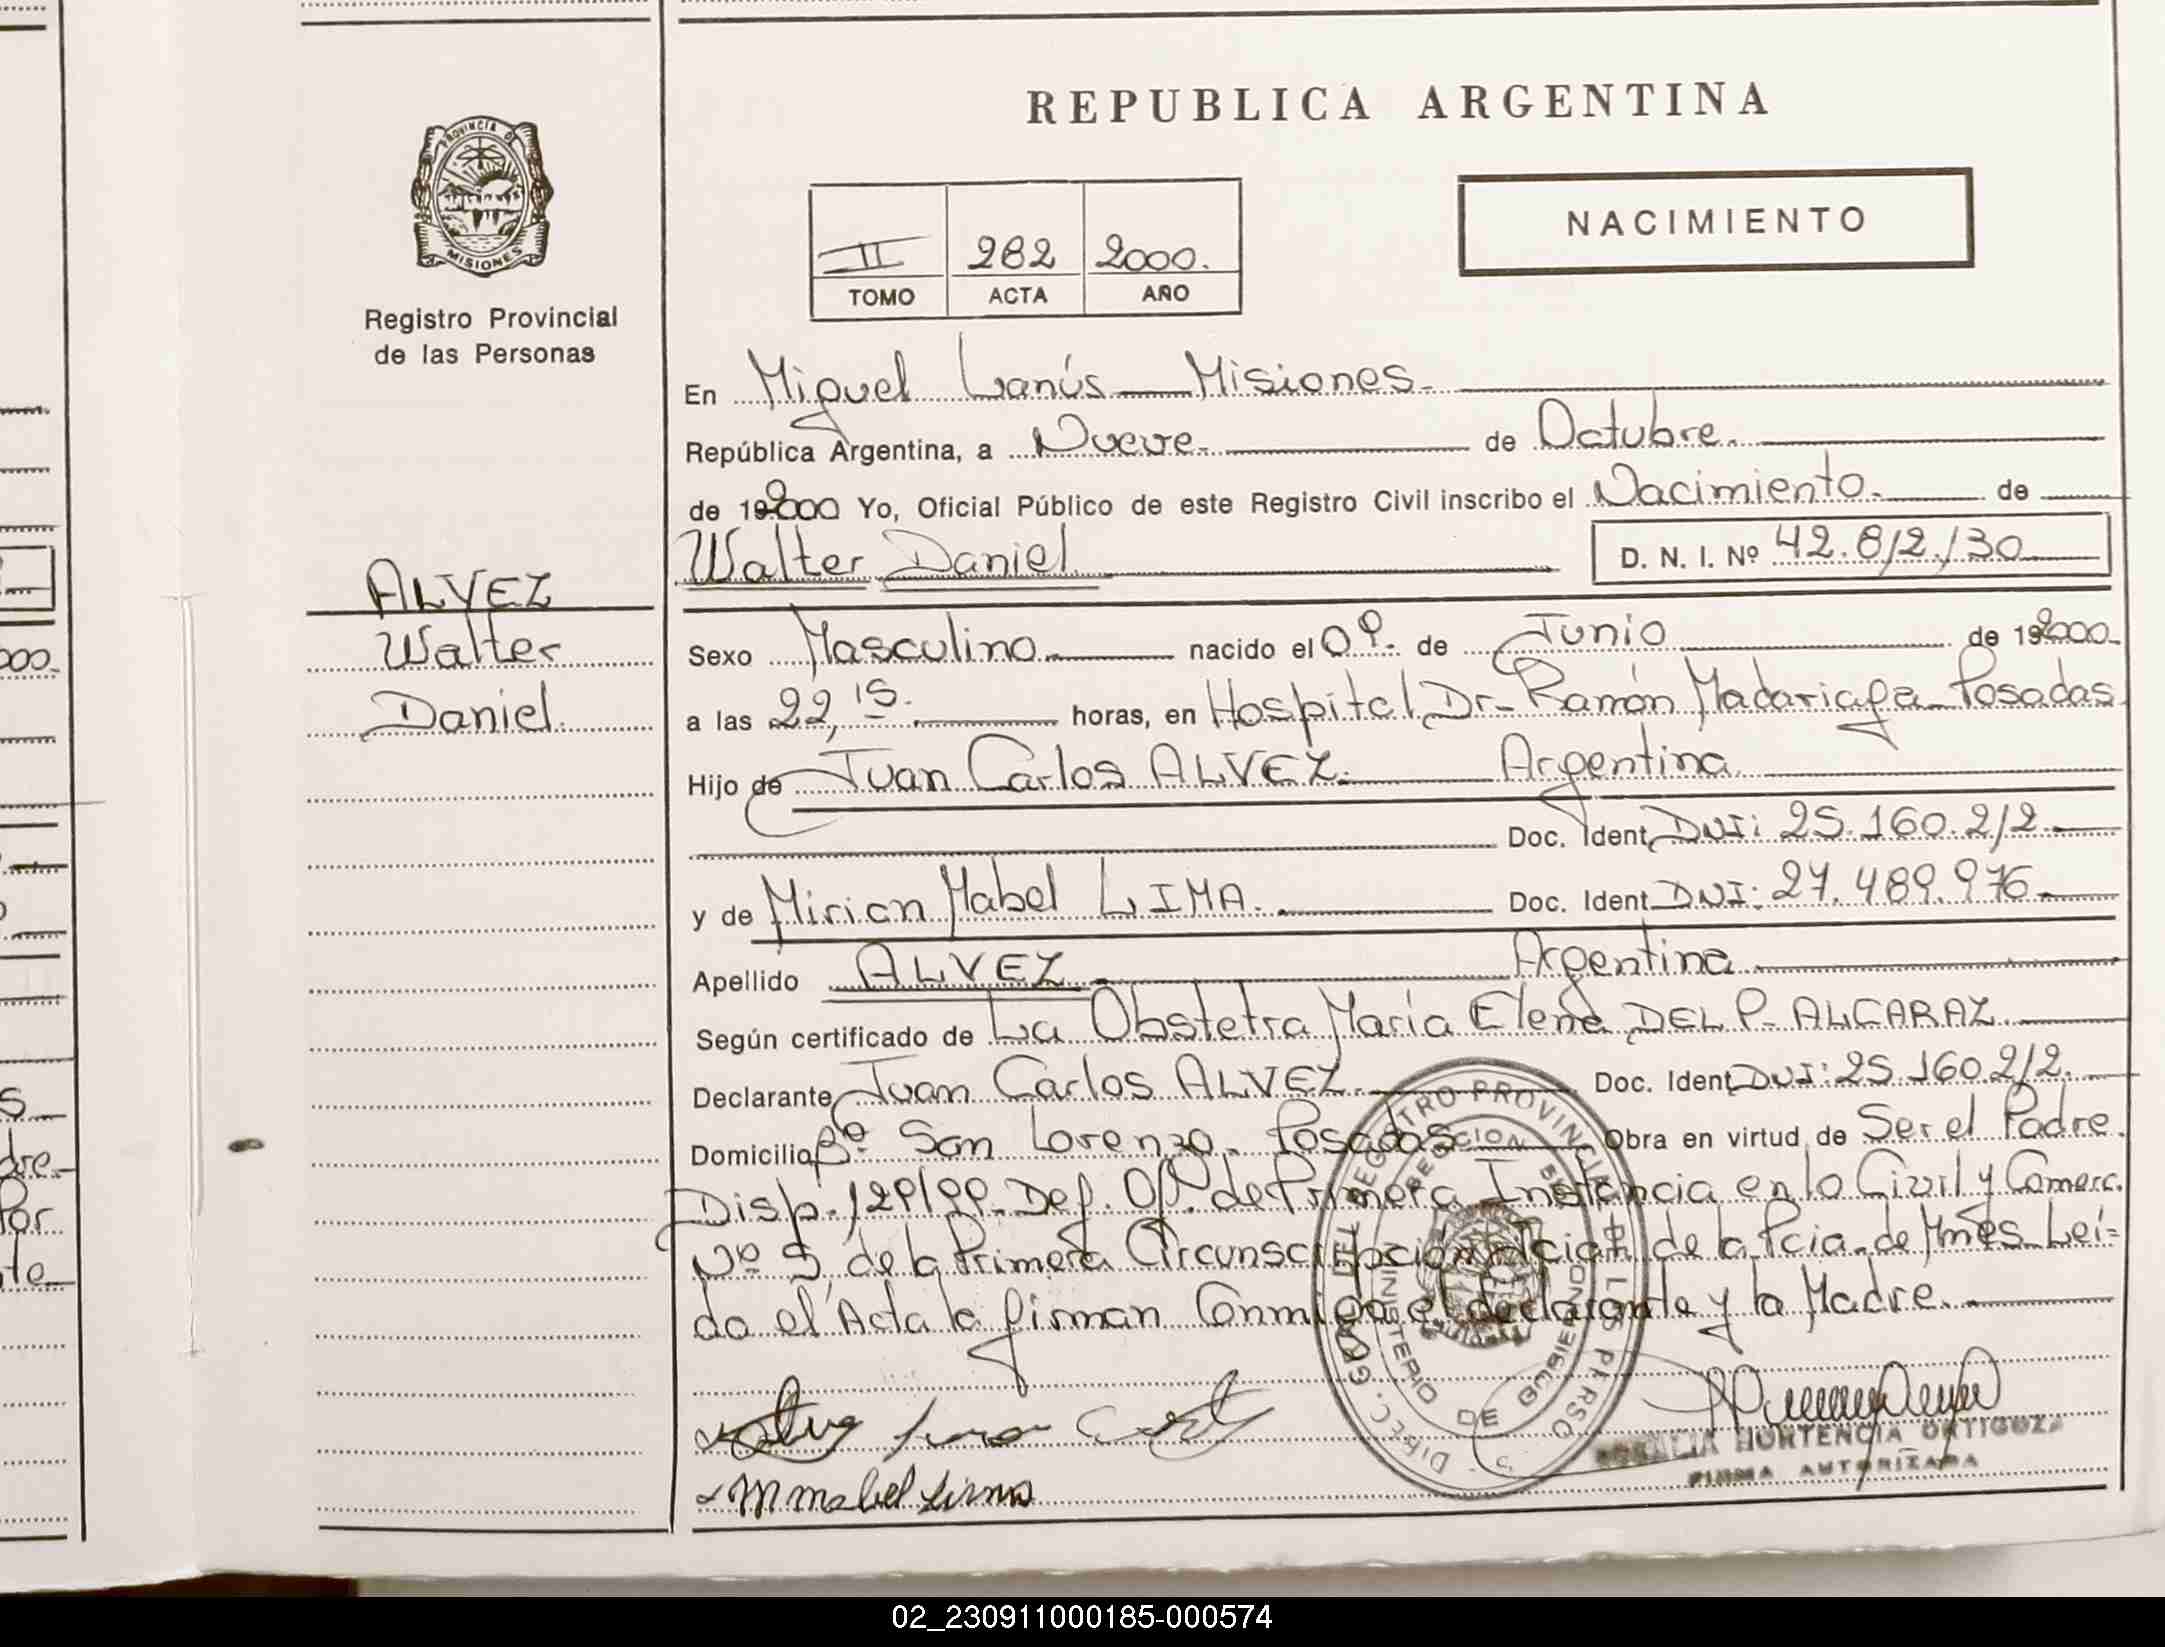 REPUBLICA ARGENTINA
PROVINCIA DE
MISIONES
Registro Provincial
de las Personas
NACIMIENTO
II 282 2000.
TOMO ACTA AÑO
En Miguel Lanús — Misiones.
República Argentina, a Nueve. de Octubre.
de 192000 Yo, Oficial Público de este Registro Civil inscribo el Nacimiento. de
Walter Daniel. D. N. I. Nº 42.812.130
ALVEZ
Walter
Daniel.
Sexo Masculino. nacido el 09. de Junio de 192000.
a las 22,15. horas, en Hospital Dr. Ramón Madariaga Posadas
Hijo de Juan Carlos ALVEZ. Argentina
Doc. Ident. DNI: 25.160.212.
y de Mirian Mabel LIMA. Doc. Ident. DNI: 27.489.976.
Apellido ALVEZ Argentina
Según certificado de La Obstetra María Elena DEL P. ALCARAZ
Declarante Juan Carlos ALVEZ. Doc. Ident. DNI: 25.160.212.
Domicilio Bº San Lorenzo. Posadas Obra en virtud de Ser el Padre.
Disp. 129/99. Def. Of. de Primera Instancia en lo Civil y Comerc.
Nº 5 de la Primera Circunscripción de la Pcia. de Mnes. Leí=
do el Acta la firman Conmigo el declarante y la Madre.
DIREC. GRAL DEL REGISTRO PROVINCIAL DE LAS PERSONAS
MINISTERIO DE GOBIERNO
M mabel Lima
HORTENCIA ORTIGOZA
FIRMA AUTORIZADA
02_230911000185-000574